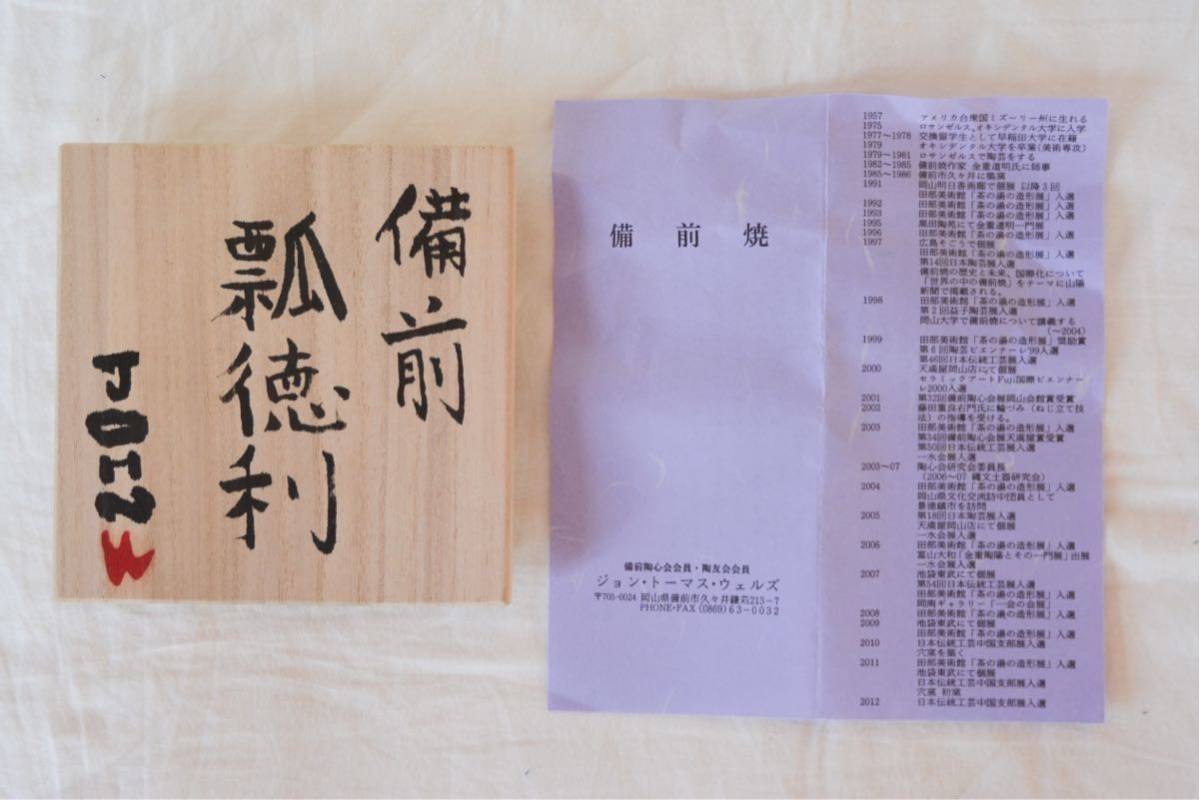 備前
瓢徳利
JOHN
W
備前焼
備前陶心会会員・陶友会会員
ジョン・トーマス・ウェルズ
〒705-0024 岡山県備前市久々井鎌石213-7
PHONE・FAX (0869) 63-0032
1957 アメリカ合衆国ミズーリー州に生れる
1975 ロサンゼルス、オキシデンタル大学に入学
1977〜1978 交換留学生として早稲田大学に在籍
1979 オキシデンタル大学を卒業(美術専攻)
1979〜1981 ロサンゼルスで陶芸をする
1982〜1985 備前焼作家 金重道明氏に師事
1985〜1986 備前市久々井に築窯
1991 岡山明日香術廊で個展 以降3回
田部美術館「茶の湯の造形展」入選
1992 田部美術館「茶の湯の造形展」入選
1993 田部美術館「茶の湯の造形展」入選
1995 黒田陶苑にて金重道明一門展
1996 田部美術館「茶の湯の造形展」入選
1997 広島そごうで個展
田部美術館「茶の湯の造形展」入選
第14回日本陶芸展入選
備前焼の歴史と未来、国際化について
「世界の中の備前焼」をテーマに山陽
新聞で掲載される。
1998 田部美術館「茶の湯の造形展」入選
第2回益子陶芸展入選
岡山大学で備前焼について講義する
(〜2004)
1999 田部美術館「茶の湯の造形展」奨励賞
第6回陶芸ビエンナーレ'99入選
第46回日本伝統工芸展入選
2000 天満屋岡山店にて個展
セラミックアートFuji国際ビエンナー
レ2000入選
2001 第32回備前陶心会展岡山会館賞受賞
2002 藤田重良右門氏に輪づみ(ねじ立て技
法)の指導を受ける。
2003 田部美術館「茶の湯の造形展」入選
第34回備前陶心会展天満屋賞受賞
第50回日本伝統工芸展入選
一水会展入選
2003〜07 陶心会研究会委員長
(2006〜07 縄文土器研究会)
2004 田部美術館「茶の湯の造形展」入選
岡山県文化交流訪中団員として
景徳鎮市を訪問
2005 第18回日本陶芸展入選
天満屋岡山店にて個展
一水会展入選
2006 田部美術館「茶の湯の造形展」入選
富山大和「金重陶陽とその一門展」出展
一水会展入選
2007 池袋東武にて個展
第54回日本伝統工芸展入選
田部美術館「茶の湯の造形展」入選
岡南ギャラリー「一会の会展」
2008 田部美術館「茶の湯の造形展」入選
2009 池袋東武にて個展
田部美術館「茶の湯の造形展」入選
2010 日本伝統工芸中国支部展入選
穴窯を築く
2011 田部美術館「茶の湯の造形展」入選
池袋東武にて個展
日本伝統工芸中国支部展入選
穴窯 初窯
2012 日本伝統工芸中国支部展入選